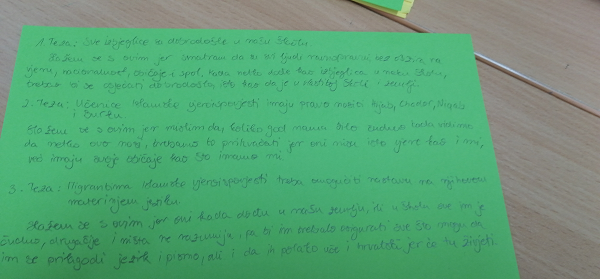 1. Teza: Sve izbjeglice su dobrodošle u našu školu
Slažem se s ovim jer smatram da su svi ljudi ravnopravni, bez obzira na
vjeru, nacionalnost, običaje i spol. Kada netko dođe kao izbjeglica u našu školu,
trebao bi se osjećati dobrodošlo, isto kao da je u vlastitoj školi i zemlji.
2. Teza: Učenice islamske vjeroispovijesti imaju pravo nositi hijab, chador, niqab
i burku.
Slažem se s ovim jer mislim da, koliko god nama bilo čudno kada vidimo
da netko ovo nosi, trebamo to prihvaćati jer oni nisu iste vjere kao i mi,
već imaju svoje običaje kao što imamo mi.
3. Teza: Migrantima islamske vjeroispovijesti treba omogućiti nastavu na njihovom
materinjem jeziku.
Slažem se s ovim jer oni kada dođu u našu zemlju, ili u školu sve im je
čudno, drugačije i ništa ne razumiju, pa bi im trebalo osigurati sve što mogu da
im se prilagodi jezik i pismo, ali i da ih polako uče i hrvatski jer će tu živjeti.